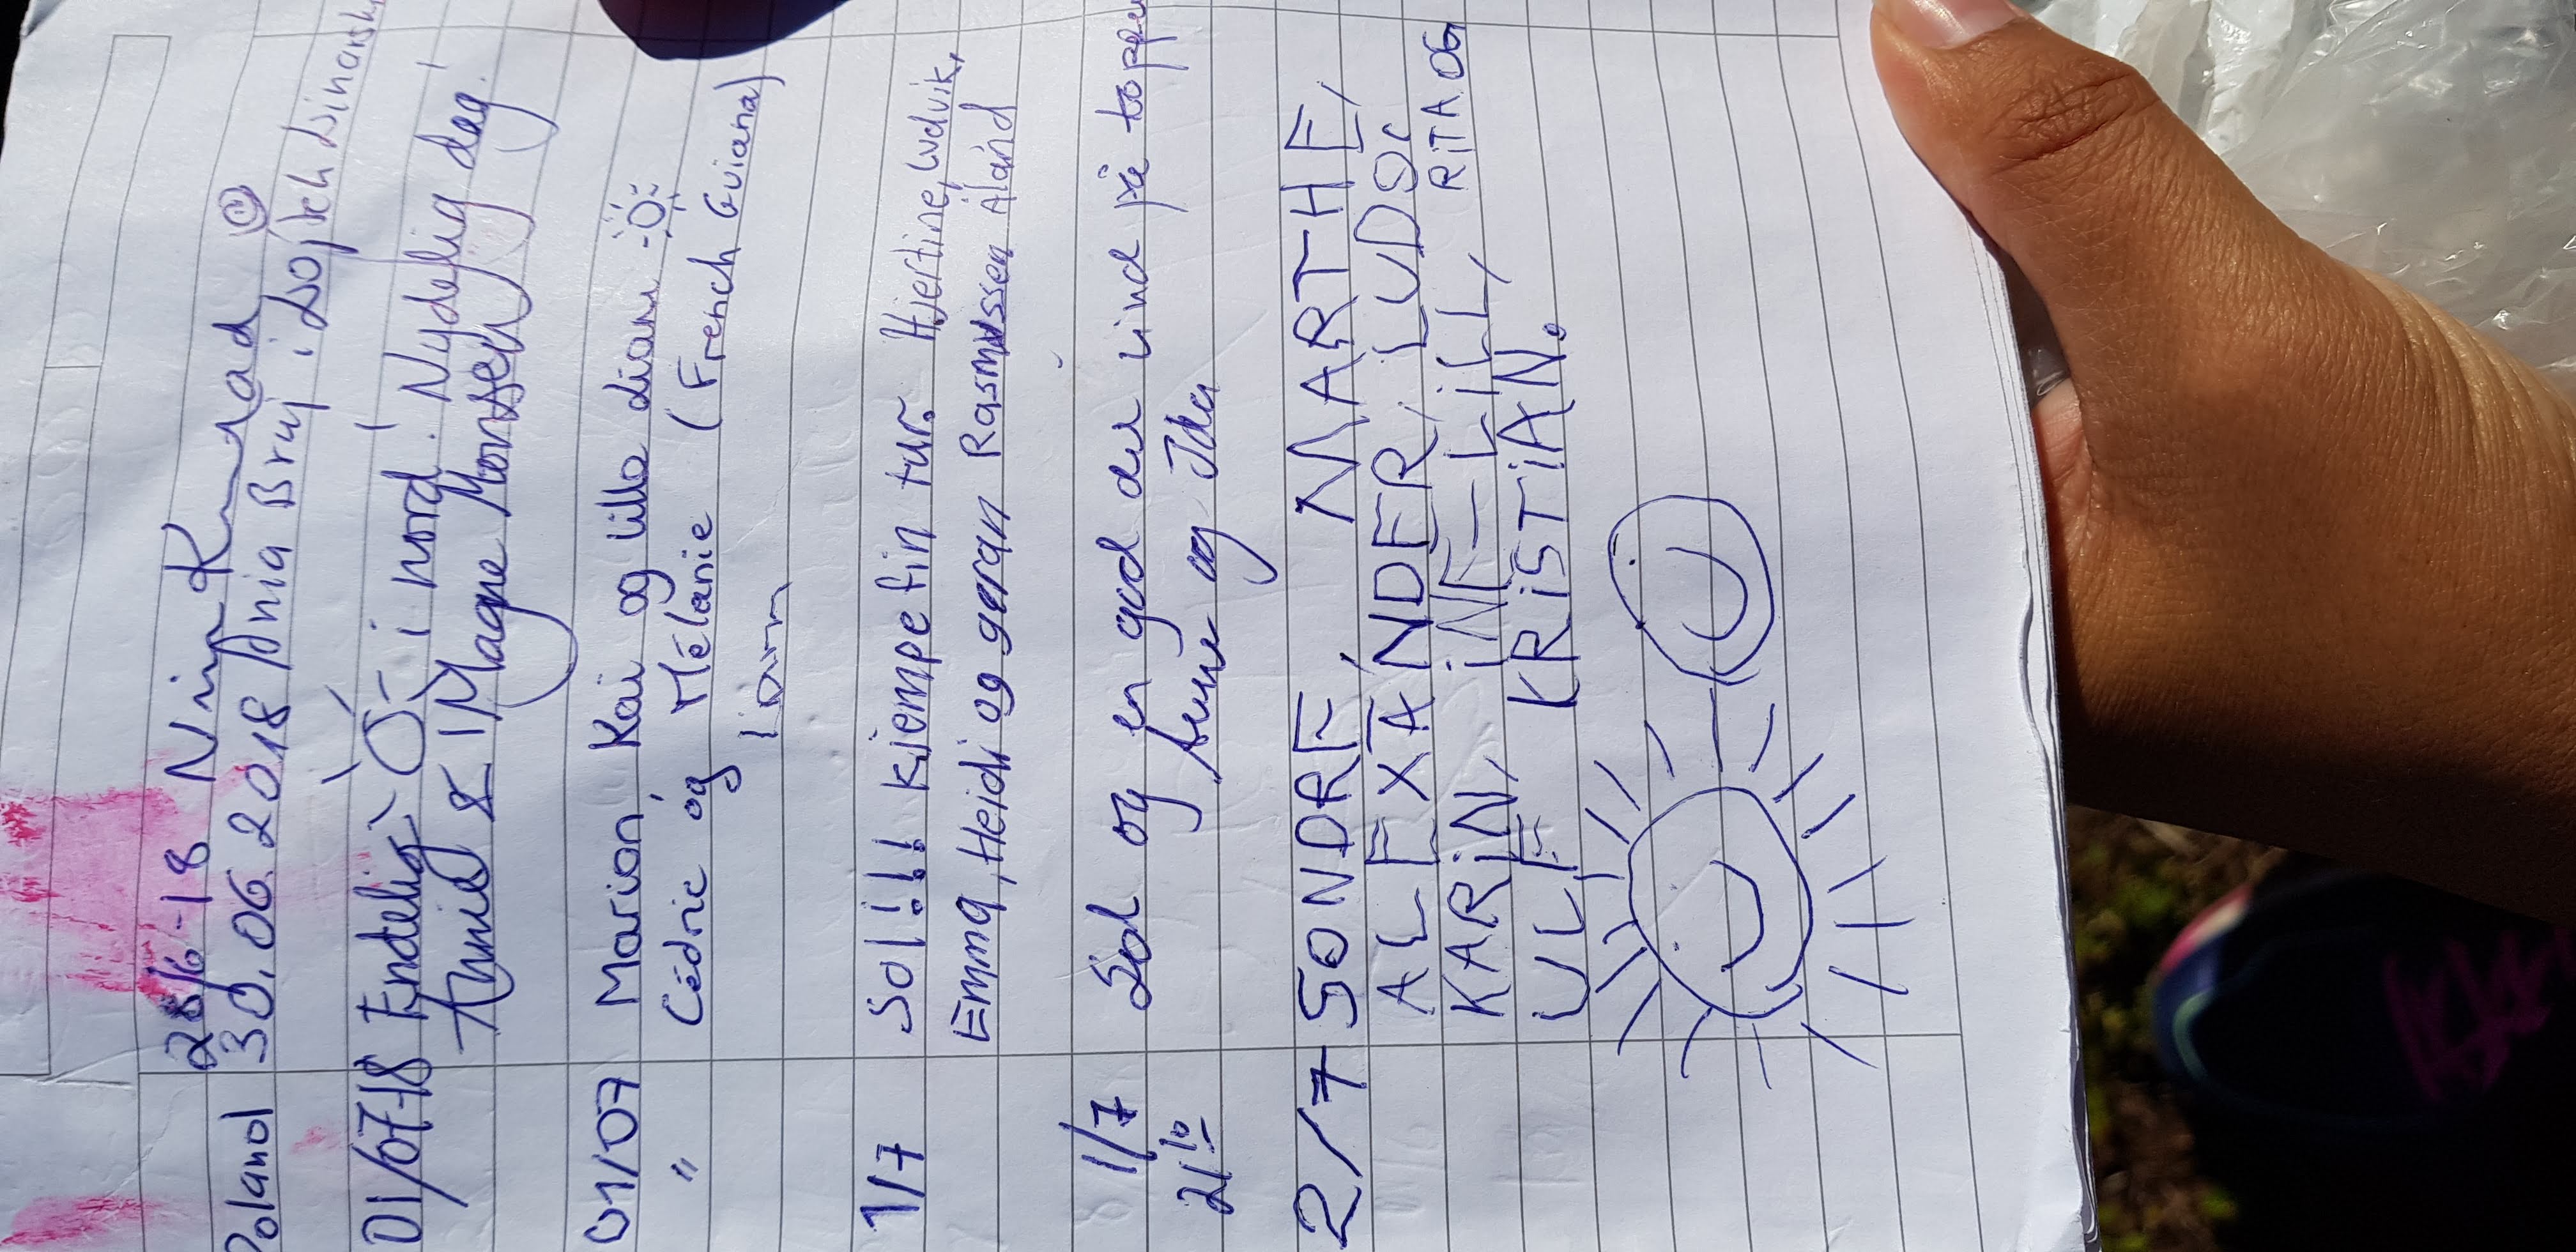 28/6-18
Poland 30.06.2018 Ania Bruj i
01/07-18 Endelig i nord! Nydelig dag!
Annie & Magne Monsen
01/07 Marion, Kai og lille Liam
" Cédric og Mélanie (French Guiana)
1/7 Sol!!! kjempefin tur. Hjertine, Ludvik,
Emma, Heidi og gøran Rasmussen Åland
1/7 Sol og en god del vind på toppe
21 10 Anne og Ida
2/7 SONDRE, MARTHE,
ALEXANDER,
KARiN, iNE-LiLL, RiTA OG
ULF KRiSTiAN.